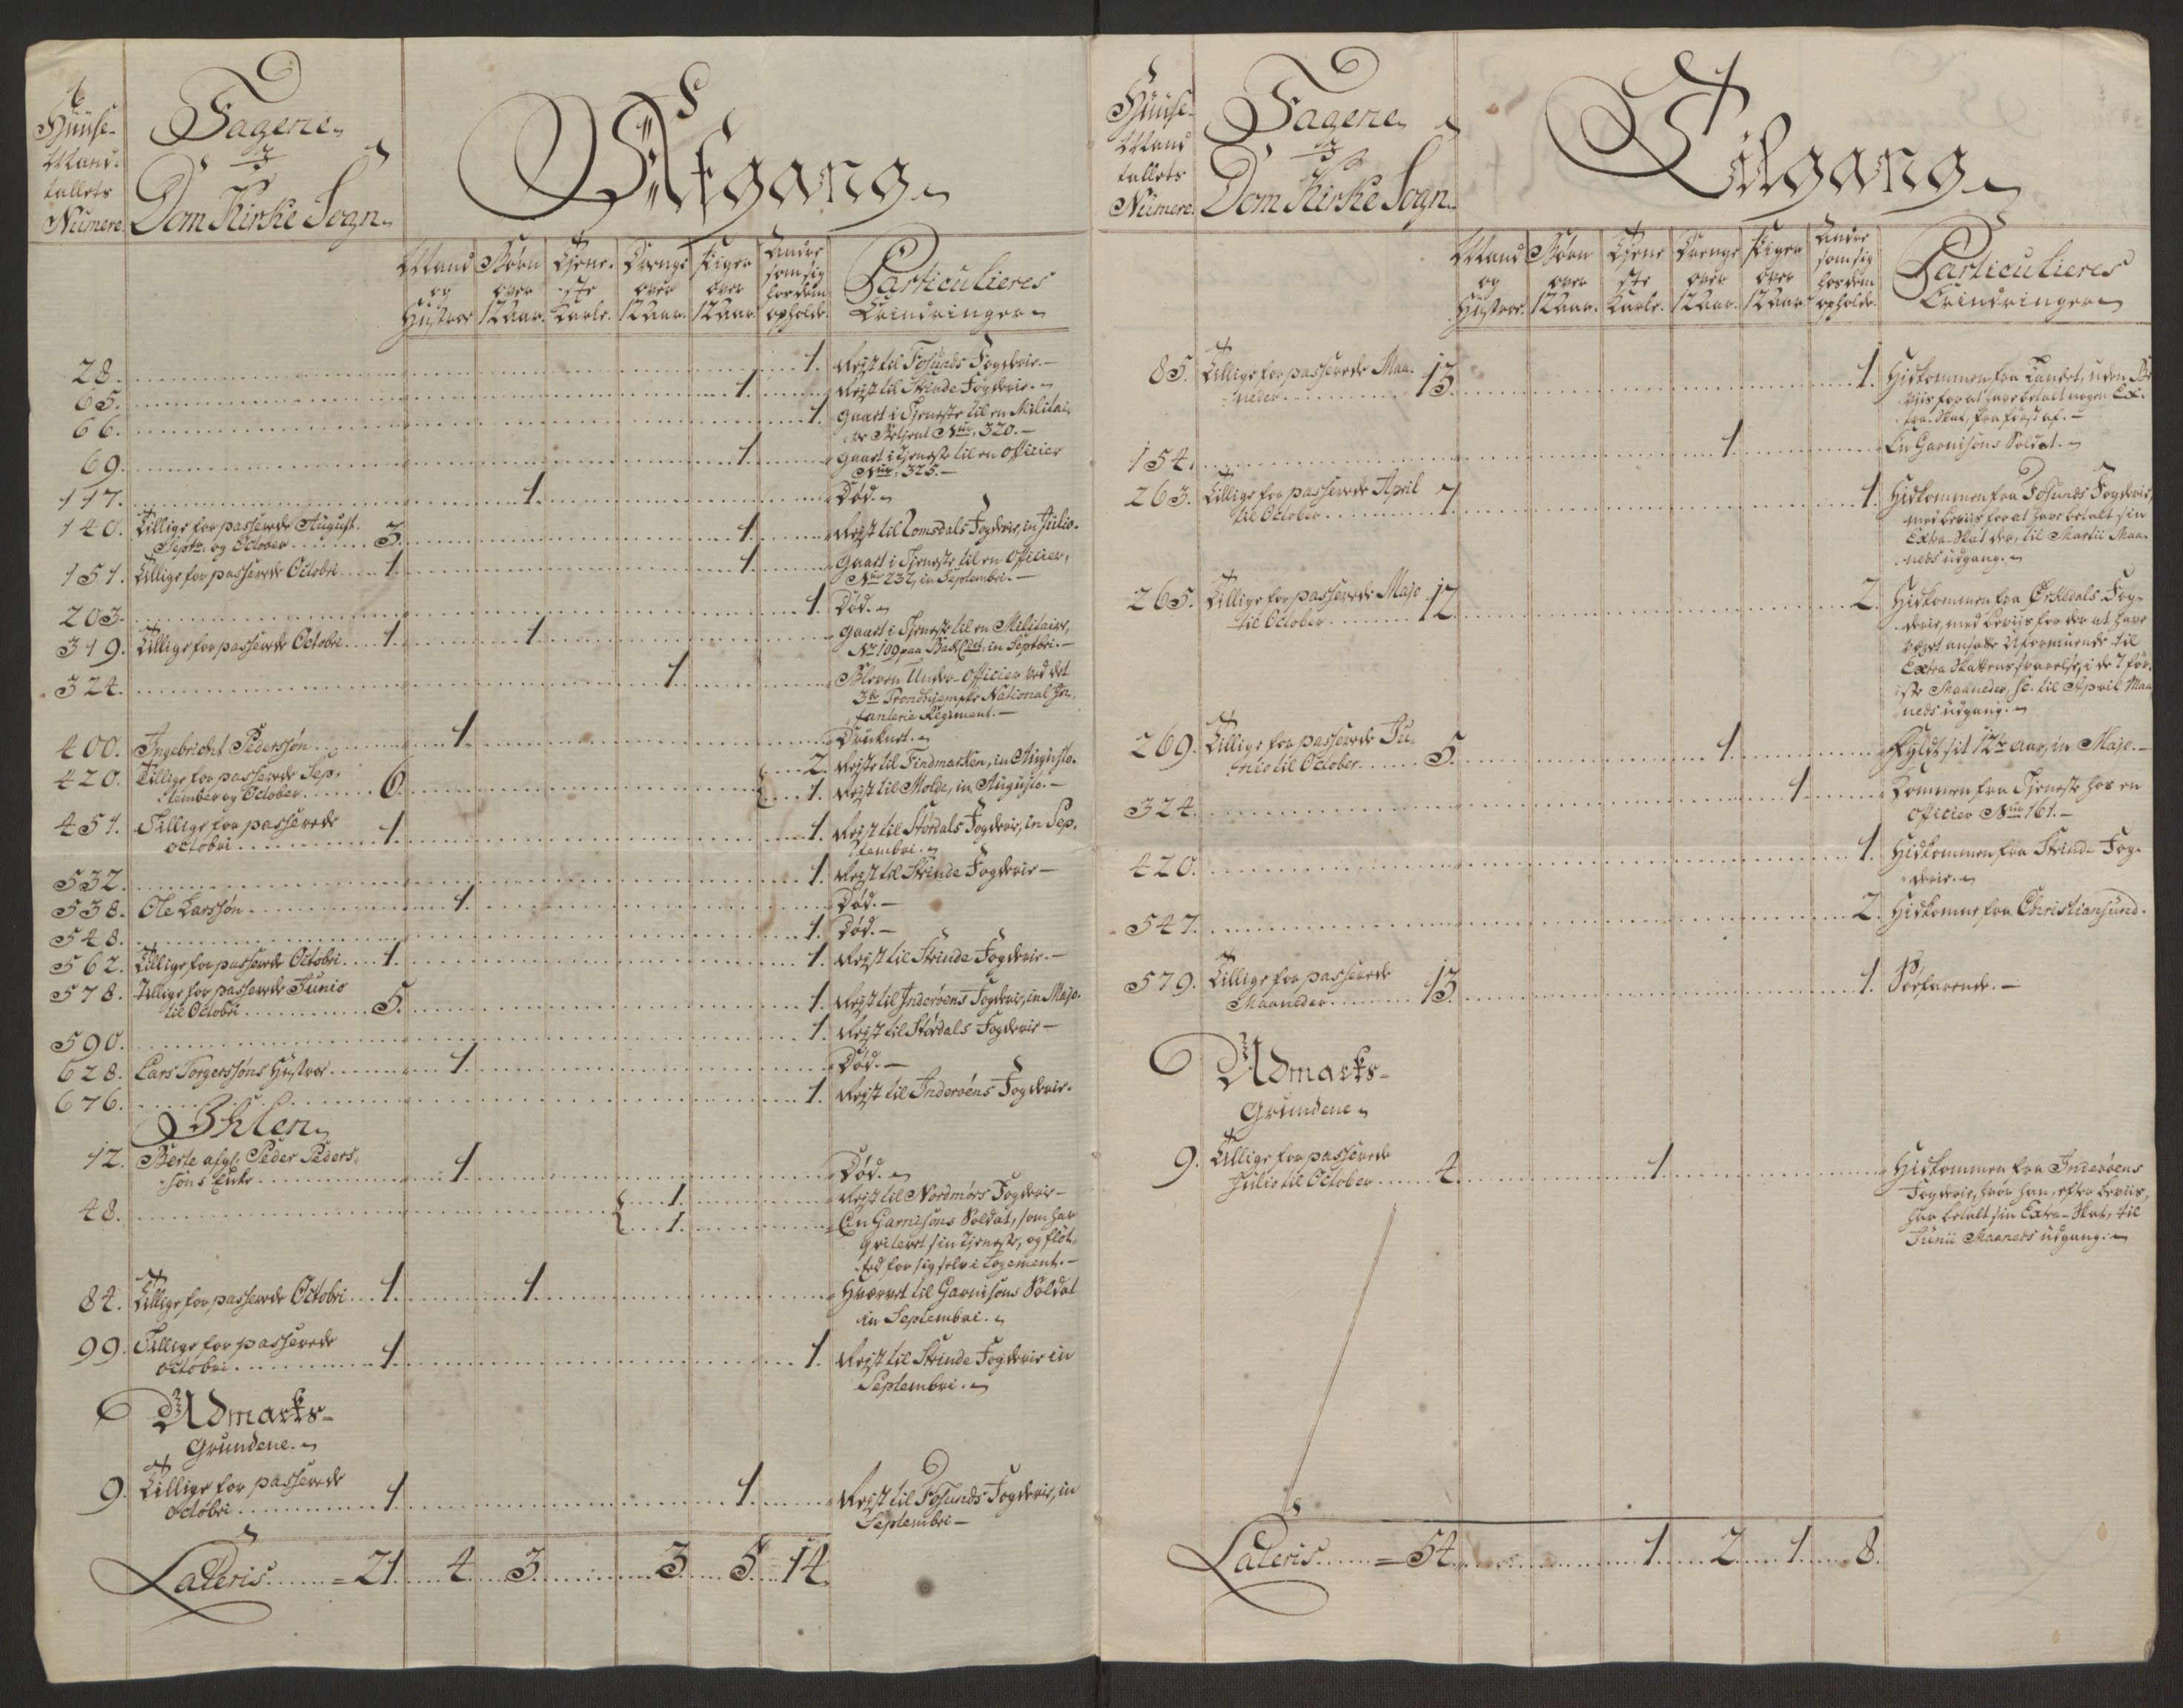 Huuse-
Mand-
tallets
Numere.
Fagene
i
Dom Kirke Sogn
Afgang
Mand og Hustroe
Børn over 12 Aar.
Tjene-ste Karle.
Drenge over 12 Aar.
Piger over 12 Aar.
Andre som sig hos dem opholde.
Particulieres Erindringer
28. 1. Rejst til Fosunds Fogderie.
65. 1. Rejst til Strinde Fogderie.
66. 1. Gaaet i Tjeneste til en Militai-
re Betjent Nur. 320.
69. 1. Gaaet i Tjeneste til en Officier
Nur. 325.
117. 1. Død.
140. Tillige for passerede August.
Septr. og October 3. 1. Rejst til Romsdals Fogderie, in Julio.
151. Tillige for passerede Octobri 1. 1. Gaaet i Tjeneste til en Officier,
Nur 232, in Septembri.
203. 1. Død.
319. Tillige for passerede Octobri 1. 1. Gaaet i Tjeneste til en Militaire,
No 109 paa in Septbri.
324. 1. Bleven Under-Officier ved det
3de Trondhjemske National In-
fanterie Regiment.
400. Ingebricht Pederssøn 1. Druknet.
420. Tillige for passerede Sep-
tember og October 6. 2. Rejste til Findmarken, in Augusto.
1. Rejst til Molde, in Augusto.
451. Tillige for passerede
octobri 1. 1. Rejst til Stordals Fogderie, in Sep-
tembri.
532. 1. Rejst til Strinde Fogderie
538. Ole Larssøn 1. Død.
548. 1. Død.
562. Tillige for passerede Octobri 1. 1. Rejst til Strinde Fogderie.
578. Tillige for passerede Junio
til Octobri 5. 1. Rejst til Inderøens Fogderie, in Majo.
590. 1. Rejst til Stordals Fogderie
628. Lars Torgerssøns Hustroe 1. Død.
676. 1. Rejst til Inderøens Fogderie.
Ihlen
12. Berte afg: Peder Peders-
søns Enke 1. Død.
48. 1. Rejst til Nordmørs Fogderie
1. En Garnisons Soldat, som har
qviteret sin Tjeneste, og fløt-
ted for sig selv i Logement.
84. Tillige for passerede Octobri 1. 1. Hværvet til Garnisons Soldat
in Septembri.
99. Tillige for passerede
octobri 1. 1. Rejst til Strinde Fogderie in
Septembri.
Udmarks-
Grundene.
9. Tillige for passerede
octobri 1. 1. Rejst til Fosunds Fogderie, in
Septembri
Lateris = 21. 4. 3. 3. 5. 14.
Huuse-
Mand
tallets
Numere.
Fagene
i
Dom Kirke Sogn
Tilgang
Mand og Hustroe.
Børn over 12 Aar.
Tjene ste Karle.
Drenge over 12 Aar.
Piger over 12 Aar
Andre som sig hos dem opholde.
Particulieres Erindringer
85. Tillige for passerede Maa-
neder 13. 1. Hidkommen fra Landet, uden Be
viis for at have betalt nogen Ex-
tra-Skat, fra først af.
154. 1. En Garnisons Soldat.
263. Tillige for passerede April
til October 7. 1. Hidkommen fra Fosunds Fogderie,
med beviis for at have betalt sin
Extra-Skat der, til Martii Maa-
neds udgang.
265. Tillige for passerede Majo
til October 12. 2. Hidkomne fra Ørkedals Fog-
derie, med Beviis for der at have
været ansatte Uformuende til
Extra Skattens svarelse, i de 7 før-
ste Maaneder, sc. til April Maa
neds udgang.
269. Tillige for passerede Ju-
nio til October 5. 1. Fyldt sit 12te Aar, in Majo.
324. 1. Kommen fra Tjeneste hos en
Officier Nur 161.
420. 1. Hidkommen fra Strinde Fog-
derie.
547. 2. Hidkomne fra Christiansund.
579. Tillige for passerede
Maaneder 13. 1. Søefarende.
Udmarks-
Grundene
9. Tillige for passerede
Julio til October 4. 1. Hidkommen fra Inderøens
Fogderie, hvor han, efter beviis,
har betalt sin Extra-Skat, til
Junii Maaneds udgang.
Lateris = 54. 1. 2. 1. 8.